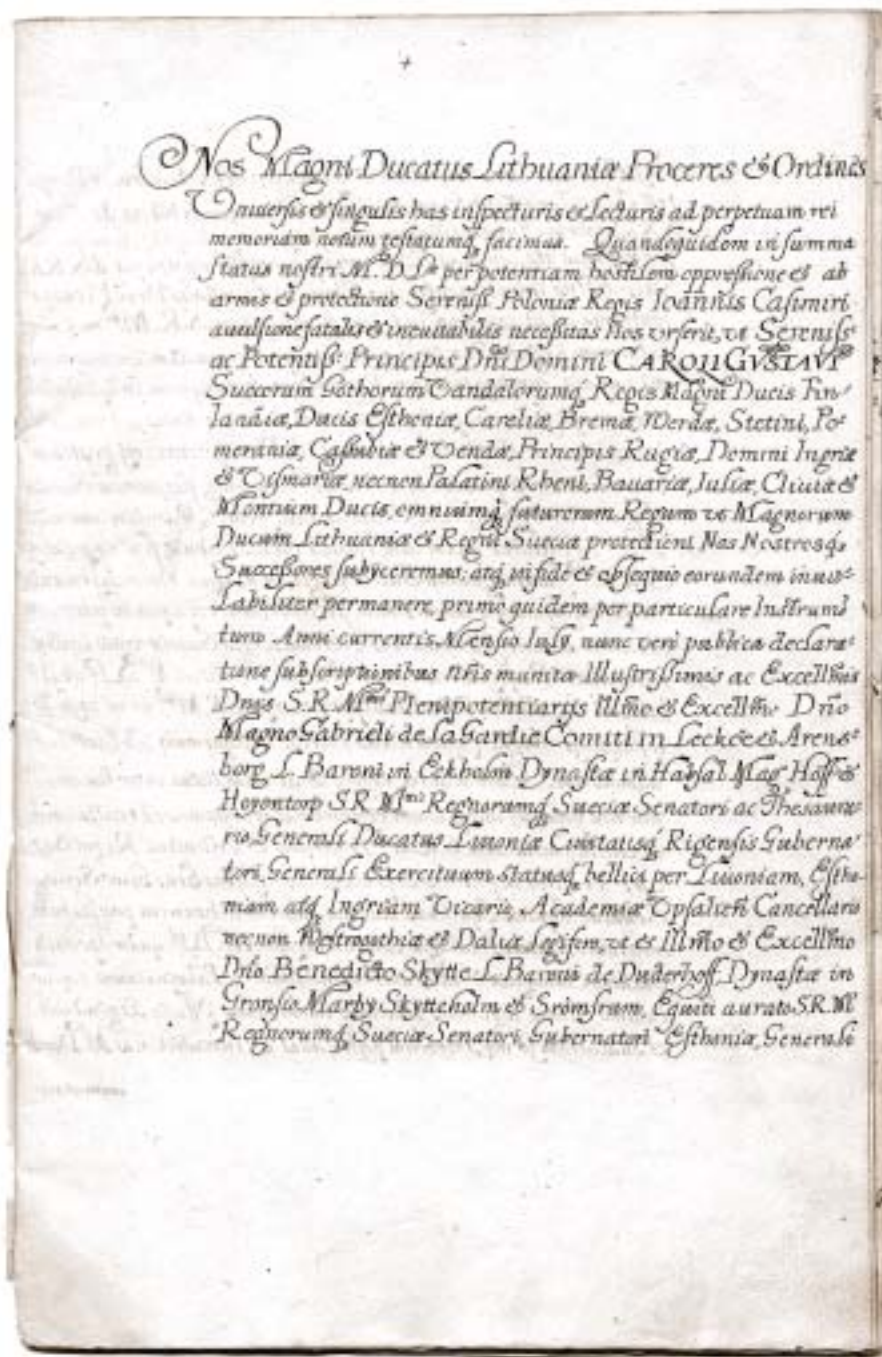 Nos Magni Ducatus Lithuaniæ Proceres & Ordines
Vniuersis & singulis has inspecturis & Lecturis ad perpetuam rei
memoriam notum testatumq, facimus. Quandoquidem in summa
status nostri M. D. L. per potentiam hostilem oppressione & ab
armis & protectione Sereniss Poloniæ Regis Ioannis Casimiri
auulsione fatalis & ineuitabilis necessitas Nos vrserit, vt Sereniss
ac Potentiss: Principis Dni Domini CAROLI GVSTAVI
Suecorum Gothorum Vandalorumq, Regis Magni Ducis Fin-
landiæ, Ducis Estheniæ, Careliæ, Bremæ, Werdæ, Stetini, Po-
meraniæ, Cassubiæ & Vendæ, Principis Rugiæ, Domini Ingriæ
& Vismariæ, necnon Palatini Rheni, Bauariæ, Iuliæ, Cliuiæ &
Montium Ducis, omniumq, futurorum Regum vt Magnorum
Ducum Lithuaniæ & Regni Sueciæ protectioni Nos Nostrosq,
Successores subyceremus, atq, in fide & obsequio eorundem inuio-
labiliter permanere, primo quidem per particulare Instrumē
tum Anni currentis Mensis Iuly, nunc vero publica declara-
tione subscriptionibus nris munita Illustrissimis ac Excellmis
Dnys S. R. Mtis Plenipotentiarys Illmo & Excellmo Dno
Magno Gabrieli de La Gardie Comiti in Leckōe & Arens-
borg L. Baroni in Eckholm Dynastæ in Habsal Mag Hoff &
Hoyentorp S R Mtis Regnorumq, Sueciæ Senatori ac Thesaura-
rio Generali Ducatus Liuoniæ Ciuitatisq, Rigensis Guberna-
tori, Generali Exercituum statusq, bellici per Liuoniam, Estho-
niam atq, Ingriam Vicario, Academiæ Vpsalien Cancellario
necnon Westrogothiæ & Daliæ Legifero, vt & Illmo & Excellmo
Dno Benedicto Skytte L. Baroni de Duderhoff, Dynastæ in
Gronsio Marby Skytteholm & Srömsrum, Equiti aurato S. R. M
Regnorumq, Sueciæ Senatori, Gubernatori Esthoniæ, Generali